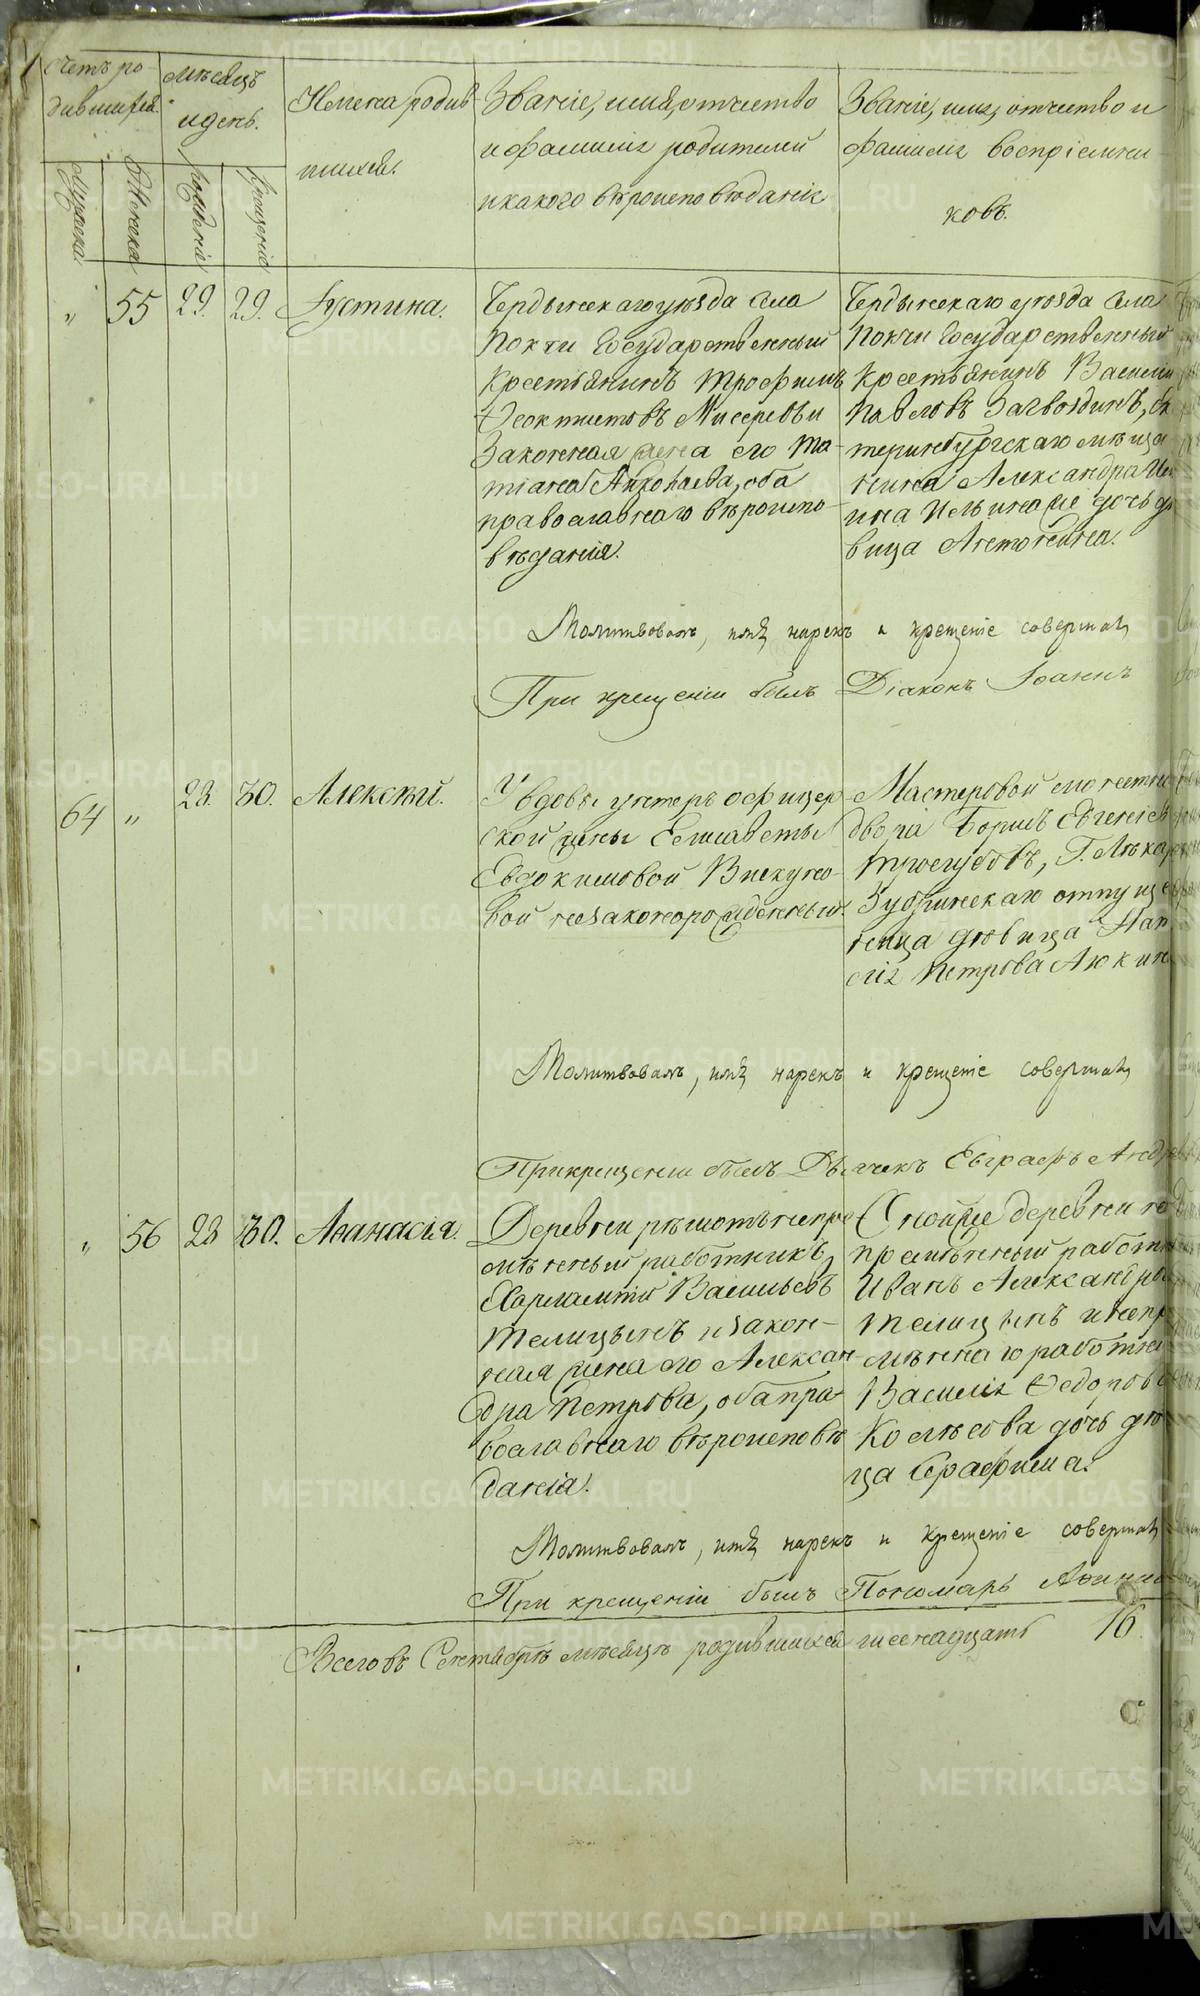 Счетъ ро-
дившихся.
Мѣсяцъ
и день.
Имена родив-
шихся.
Званіе, имя, отчество
и фамилія родителей
и какого вѣроисповѣданія
Званіе, имя, отчество и
фамилія воспріемни-
ковъ.
Мужеска
Женска
Рожденія
Крещенія
" 55 29. 29. Іустина.
Чердынскаго уѣзда села
Покчи Государственный
Крестьянинъ Трофимъ
Ѳеоктистовъ и
Законная жена его Та-
тіана Николаева, оба
православнаго вѣроиспо-
вѣданія.
Чердынскаго уѣзда села
Покчи Государственный
Крестьянинъ Василій
Павловъ Загвоздинъ, Ека
теринбургскаго мѣща
нина Александра
дочь дѣ
вица Антонина.
Молитвовалъ, имя нарекъ и крещеніе совершалъ
При крещеніи былъ Діаконъ Іоаннъ
64 " 23. 30. Алексѣй.
У вдовы унтеръ офицер-
ской жены Елисаветы
Евдокимовой
вой незаконорожденный.
Мастеровой монетнаго
двора Борисъ Евгеніевъ
Трегубовъ, Г. Лѣкаря
Зубринскаго отпущен
ница дѣвица
Петрова
Молитвовалъ, имя нарекъ и крещеніе совершалъ
При крещеніи былъ Дьячекъ Евграфъ Андр
" 56 23 30. Аѳанасія.
Деревни Рѣшотъ непре-
мѣнный работникъ
Харлампій Васильевъ
Телицынъ и закон-
ная жена его Алексан-
дра Петрова, оба пра-
вославнаго вѣроисповѣ
данія.
Оной же деревни не
премѣнный работни
Иванъ Александров
Телицынъ и непр
мѣннаго работни
Василія Ѳедорова
Колѣсова дочь дѣ
ца Серафима.
Молитвовалъ, имя нарекъ и крещеніе совершалъ
При крещеніи былъ Пономарь
Всего въ Сентябрѣ мѣсяцѣ родившихся шеснадцать 16.
METRIKI.GASO-URAL.RU